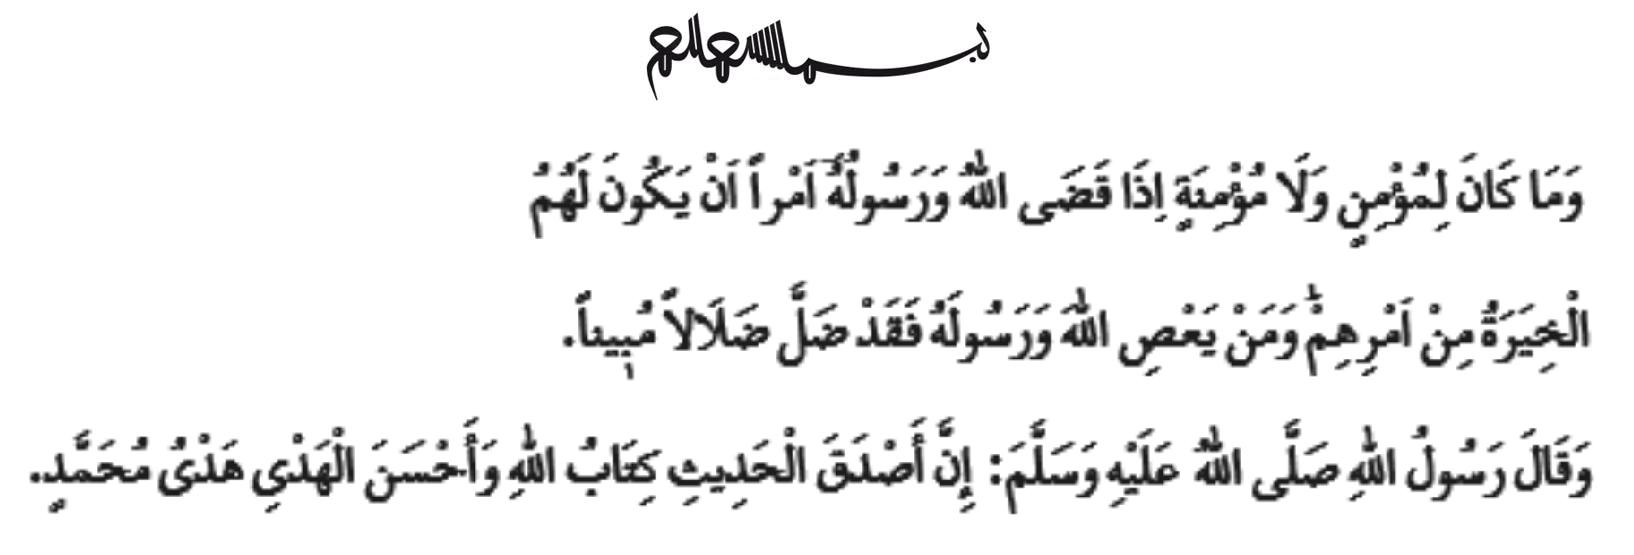 بسم الله الرحمن الرحيم
وَمَا كَانَ لِمُؤْمِنٍ وَلَا مُؤْمِنَةٍ اِذَا قَضَى اللّٰهُ وَرَسُولُهُٓ اَمْراً اَنْ يَكُونَ لَهُمُ
الْخِيَرَةُ مِنْ اَمْرِهِمْۜ وَمَنْ يَعْصِ اللّٰهَ وَرَسُولَهُ فَقَدْ ضَلَّ ضَلَالاً مُبٖيناً.
وَقَالَ رَسُولُ اللّٰهِ صَلَّى اللّٰهُ عَلَيْهِ وَسَلَّمَ: إِنَّ أَصْدَقَ الْحَدِيثِ كِتَابُ اللّٰهِ وَأَحْسَنَ الْهَدْيِ هَدْيُ مُحَمَّدٍ.